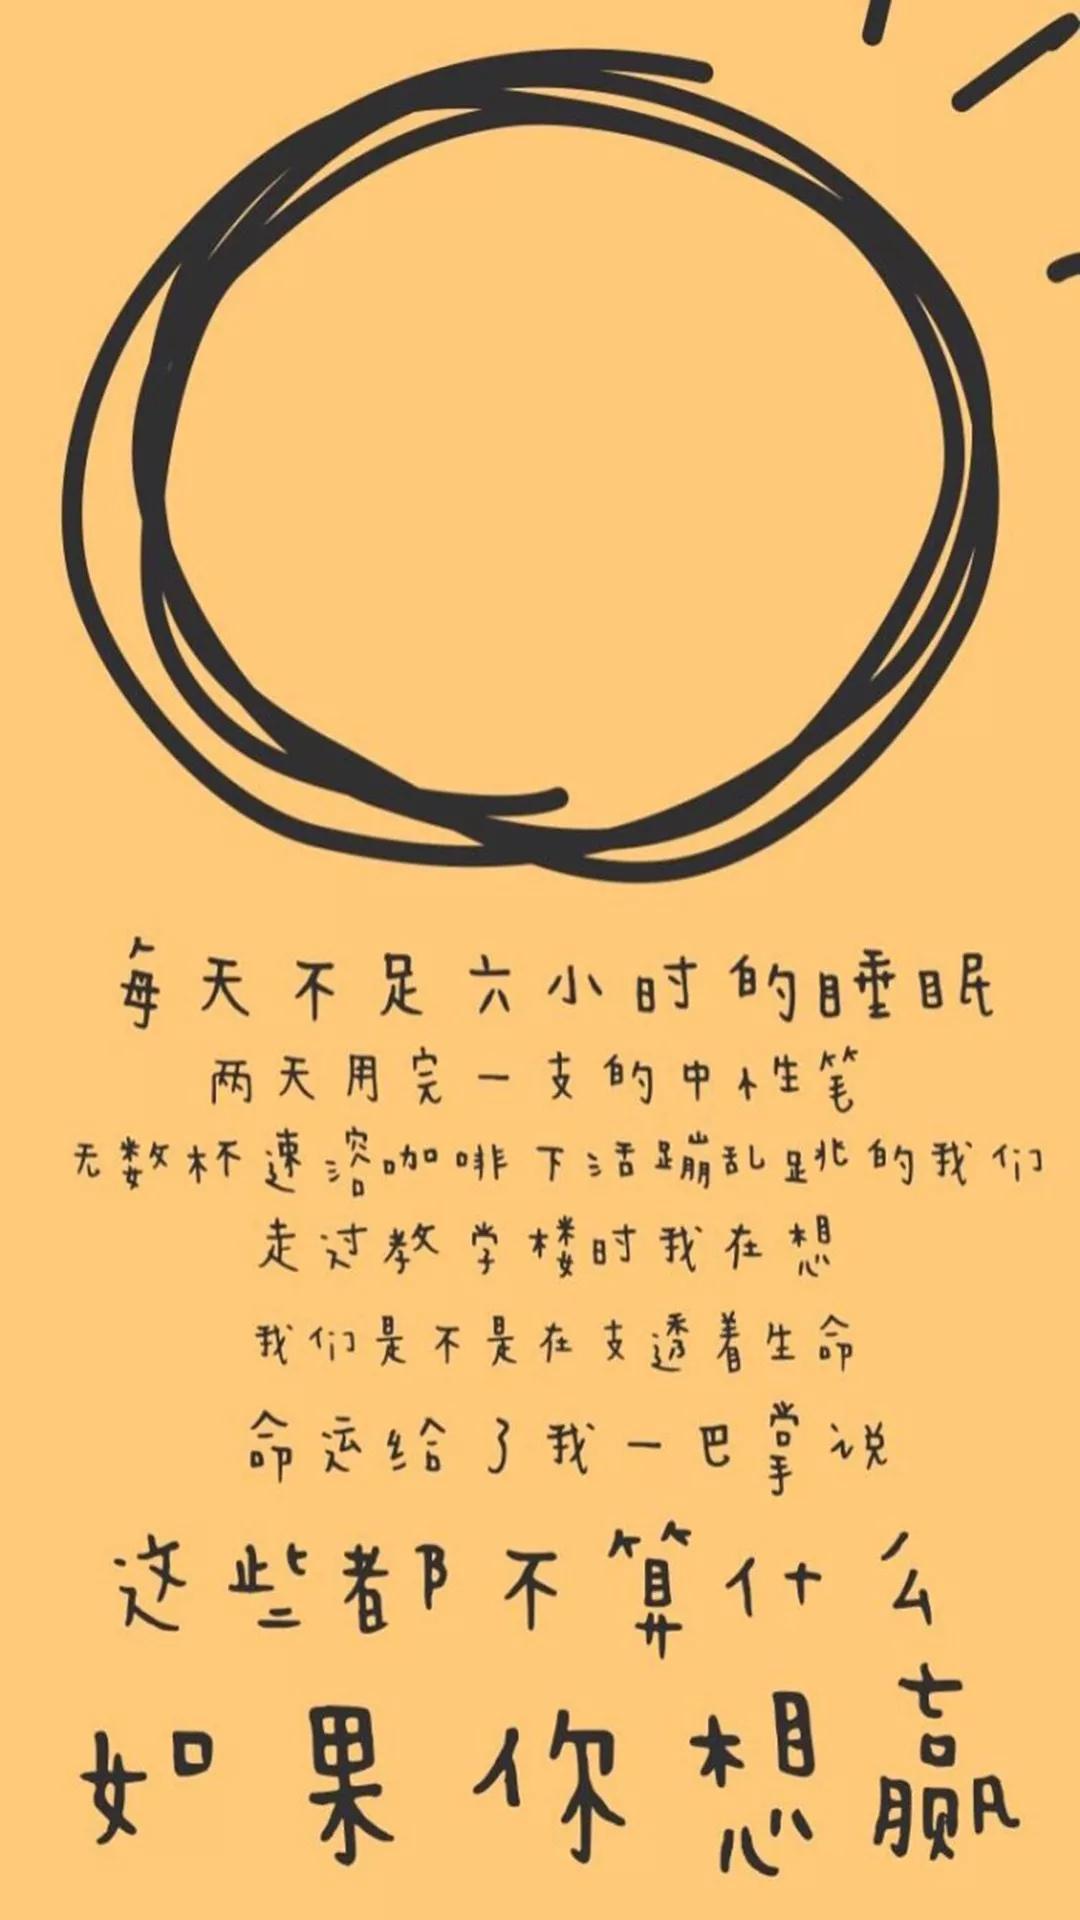 每天不足六小时的睡眠
两天用完一支的中性笔
无数杯速溶咖啡下活蹦乱跳的我们
走过教学楼时我在想
我们是不是在支透着生命
命运给了我一巴掌说
这些都不算什么
如果你想赢